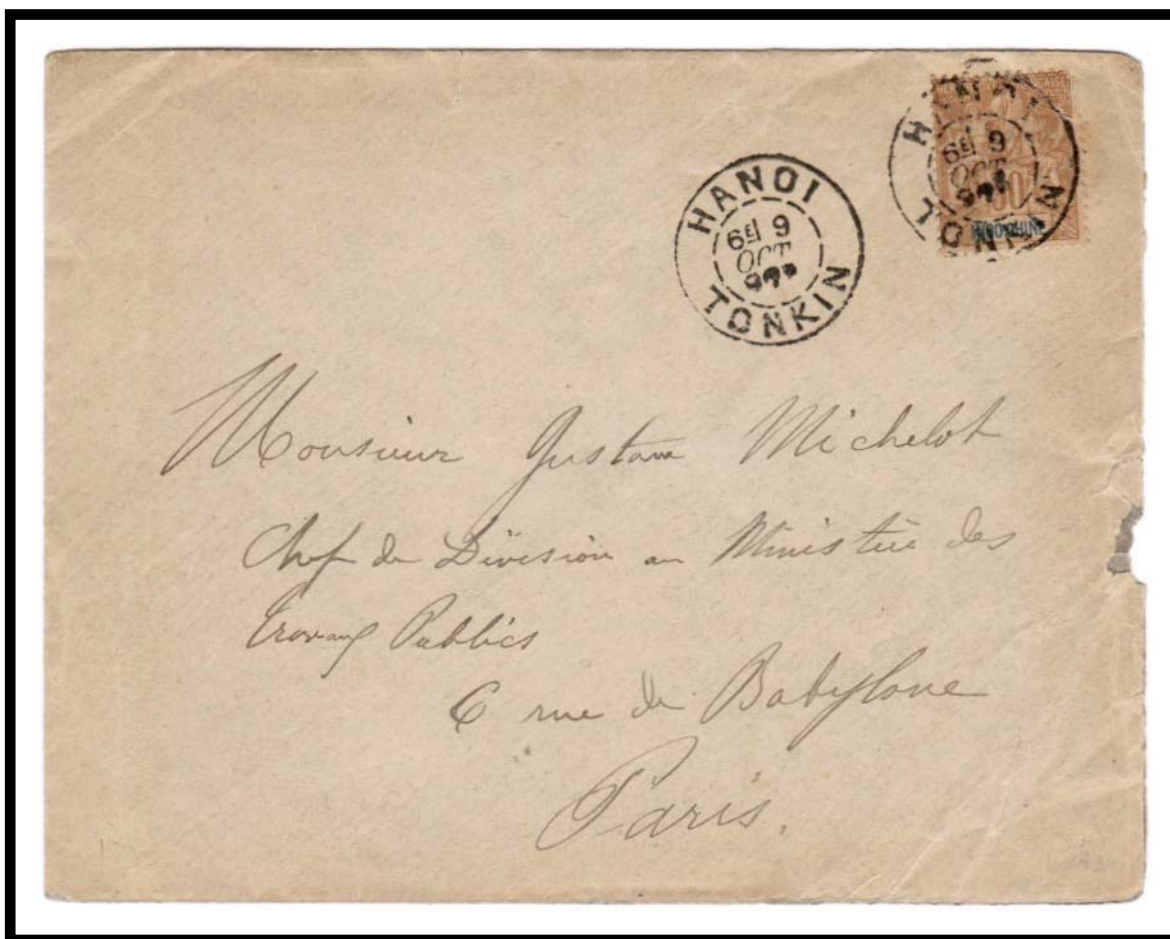 HANOI
6E 9
OCT
97
TONKIN
HANOI
6E 9
OCT
97
TONKIN
INDO-CHINE
30
Monsieur Gustave Michelot
Chef de Division au Ministère des
Travaux Publics
6 rue de Babylone
Paris.